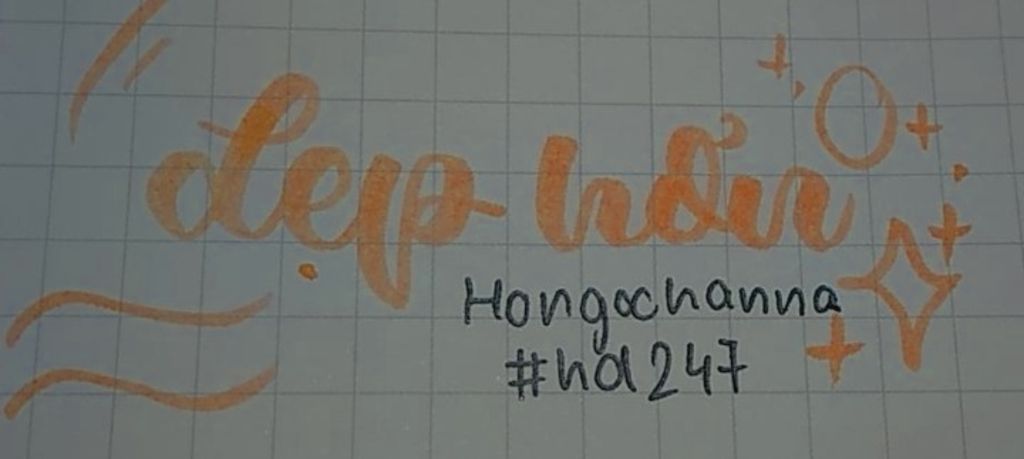 đẹp hơn
Hongochanna
#hd247